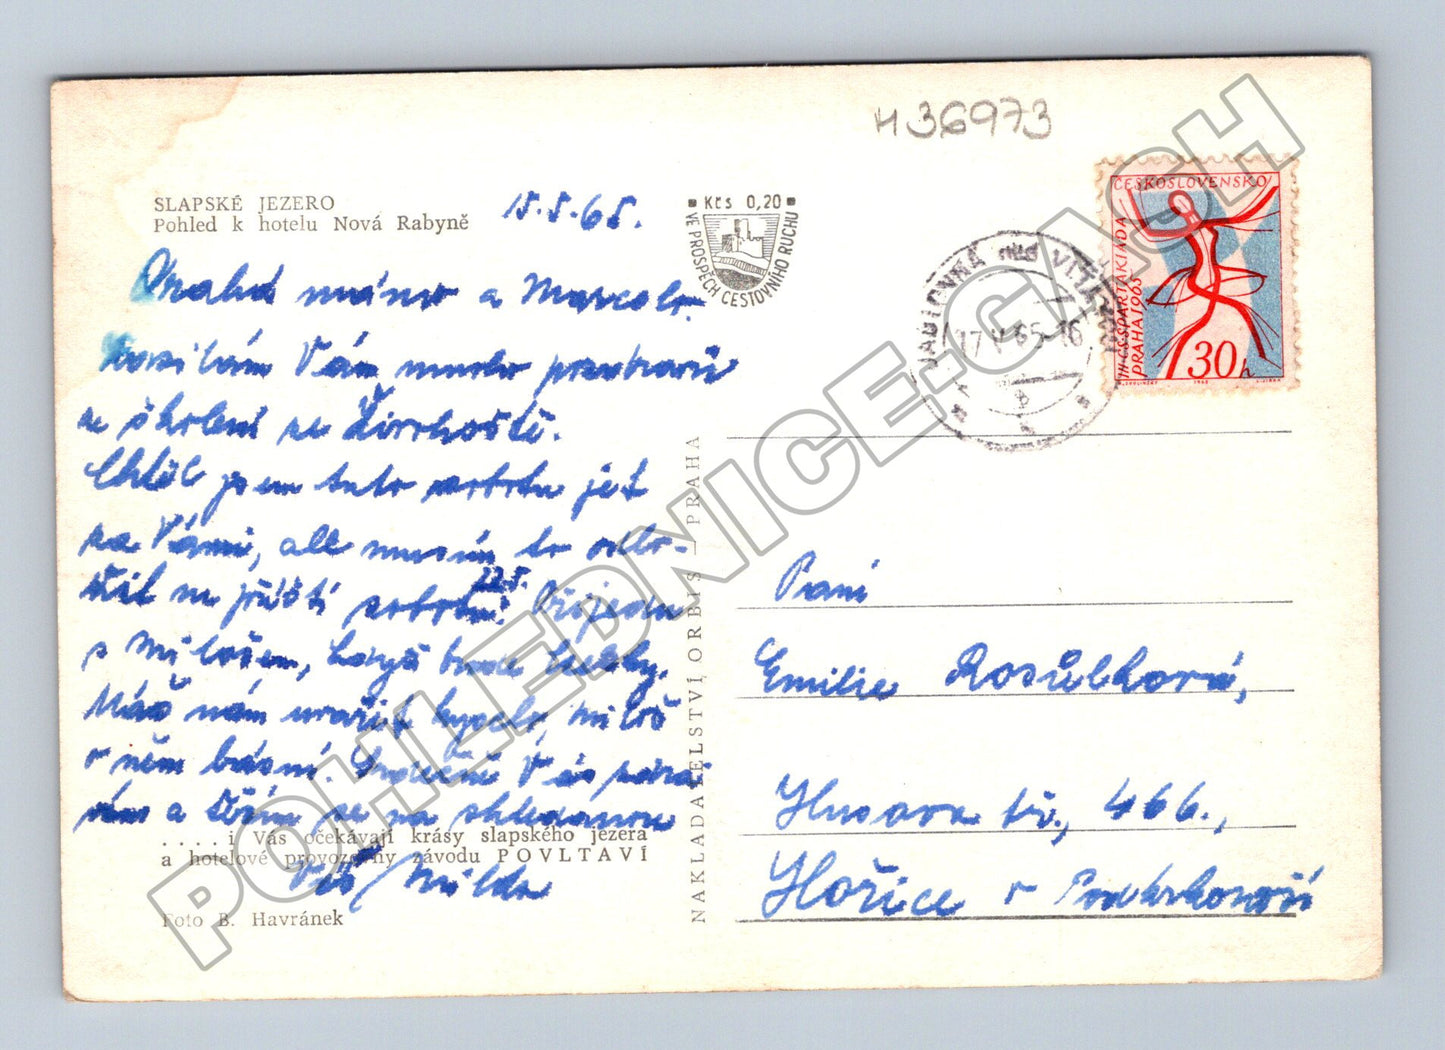 H36973
SLAPSKÉ JEZERO
Pohled k hotelu Nová Rabyně
15.5.65.
Kčs 0,20
VE PROSPĚCH CESTOVNÍHO RUCHU
ČESKOSLOVENSKO
III. CS. SPARTAKIADA
PRAHA 1965
30h
17.V.65-16
Drahá mámo a Marcelo.
Posílám Vám mnoho pozdravů
ze školení ze Živohoště.
Chtěl jsem tuto sobotu jet
za Vámi, ale musím to odlo-
žit na příští sobotu 22.5. Přijedu
s Milošem, když bude hezky.
Máš nám uvařit kyselo, Miloš
o něm básní. Srdečně Vás zdra-
vím a těším se na shledanou
Váš Milda
.....i Vás očekávají krásy slapského jezera
a hotelové provozovny závodu POVLTAVÍ
Foto B. Havránek
NAKLADATELSTVÍ ORBIS — PRAHA
Paní
Emilie Rosůlková,
Husova tř., 466.,
Hořice v Podkrkonoší
POHLEDNICE.GASH